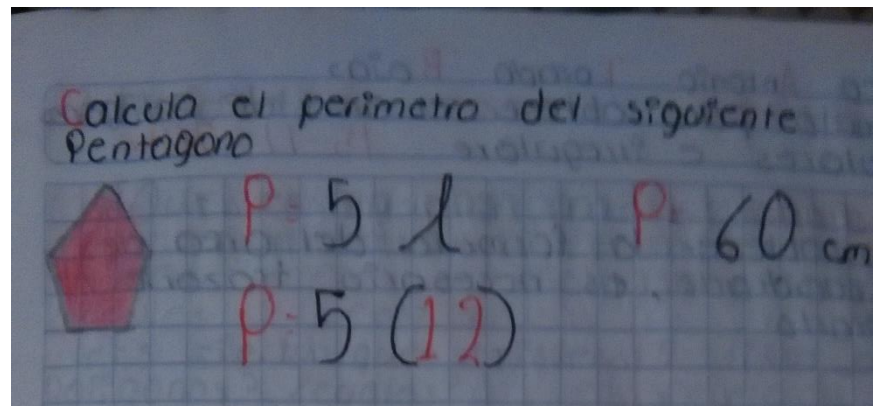 Calcula el perimetro del siguiente
Pentagono
P= 5 l P= 60 cm
P= 5 (12)